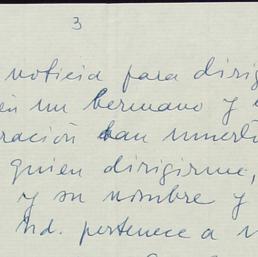 3
noticia para dirig
un hermano y
ración han muerto
quien dirigirme,
y su nombre y
Ud. pertenece a